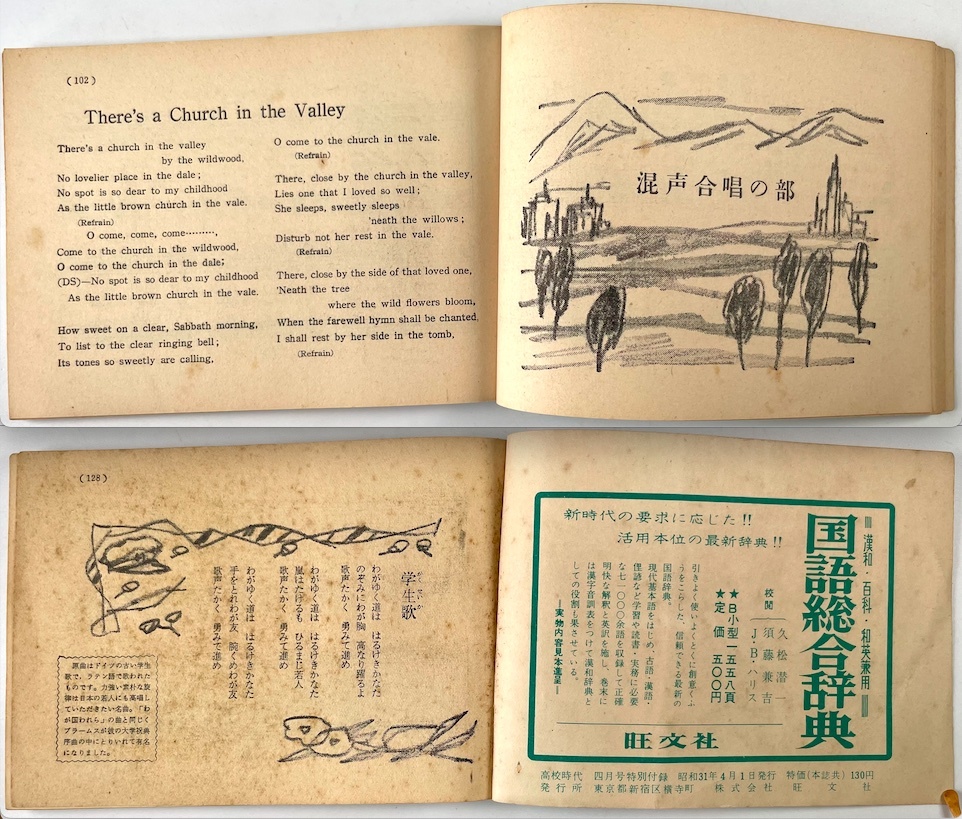 (102)
There's a Church in the Valley
There's a church in the valley
by the wildwood,
No lovelier place in the dale;
No spot is so dear to my childhood
As the little brown church in the vale.
(Refrain)
O come, come, come………,
Come to the church in the wildwood,
O come to the church in the dale;
(DS)—No spot is so dear to my childhood
As the little brown church in the vale.
How sweet on a clear, Sabbath morning,
To list to the clear ringing bell;
Its tones so sweetly are calling,
O come to the church in the vale.
(Refrain)
There, close by the church in the valley,
Lies one that I loved so well;
She sleeps, sweetly sleeps
'neath the willows;
Disturb not her rest in the vale.
(Refrain)
There, close by the side of that loved one,
'Neath the tree
where the wild flowers bloom,
When the farewell hymn shall be chanted,
I shall rest by her side in the tomb,
(Refrain)
混声合唱の部
(128)
学生歌
わがゆく道は はるけきかなた
のぞみにわが胸 高なり躍るよ
歌声たかく 勇みて進め
わがゆく道は はるけきかなた
嵐はたけるも ひるまじ若人
歌声たかく 勇みて進め
わがゆく道は はるけきかなた
手をとれわが友 腕くめわが友
歌声たかく 勇みて進め
原曲はドイツの古い学生
歌で、ラテン語で歌われた
ものです。力強い素朴な旋
律は日本の若人にも高唱し
ていただきたい名曲。「わ
が国われら」の曲と同じく
ブラームスが彼の大学祝典
序曲の中にとりいれて有名
になりました。
新時代の要求に応じた!!
活用本位の最新辞典!!
漢和・百科・和英兼用
国語総合辞典
校閲
久松潜一
須藤兼吉
J・B・ハリス
★B小型一五五八頁
★定 価 五〇〇円
引きよく使いよくとくに創意くふ
うをこらした、信頼できる最新の
国語辞典。
現代基本語をはじめ、古語・漢語・
俚諺など学習や読書・実務に必要
な七一〇〇〇余語を収録して正確
明快な解釈と英訳を施し、巻末に
は漢字音訓表をつけて漢和辞典と
しての役割も果させている。
―実物内容見本進呈―
旺文社
高校時代 四月号特別付録 昭和31年4月1日発行 特価(本誌共)130円
発行所 東京都新宿区横寺町 株式会社 旺文社